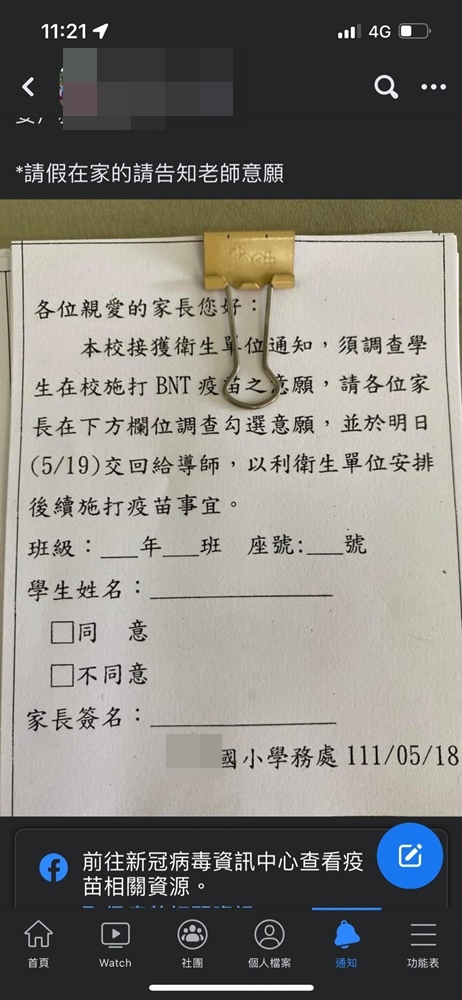 11:21
4G
*請假在家的請告知老師意願
各位親愛的家長您好：
本校接獲衛生單位通知，須調查學
生在校施打 BNT 疫苗之意願，請各位家
長在下方欄位調查勾選意願，並於明日
(5/19)交回給導師，以利衛生單位安排
後續施打疫苗事宜。
班級：___年___班 座號:___號
學生姓名：_______________
□同 意
□不同意
家長簽名：_______________
國小學務處 111/05/18
前往新冠病毒資訊中心查看疫
苗相關資源。
首頁
Watch
社團
個人檔案
通知
功能表